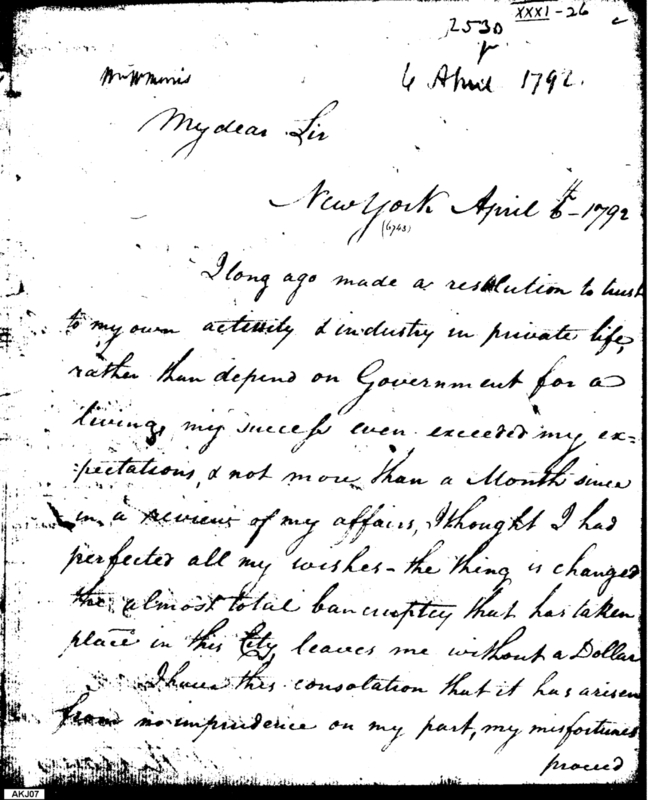 XXXI-26
2530
6 April 1792.
My dear Sir
New York April 6th - 1792
(6743)
I long ago made a resolution to trust
to my own activity & industry in private life,
rather than depend on Government for a
living, my success even exceeded my ex=
=pectations, & not more than a Month since
in a review of my affairs, I thought I had
perfected all my wishes - the thing is changed
the almost total bankruptcy that has taken
place in this City leaves me without a Dollar
I have this consolation that it has arisen
from no imprudence on my part, my misfortunes
proceed
AKJ07